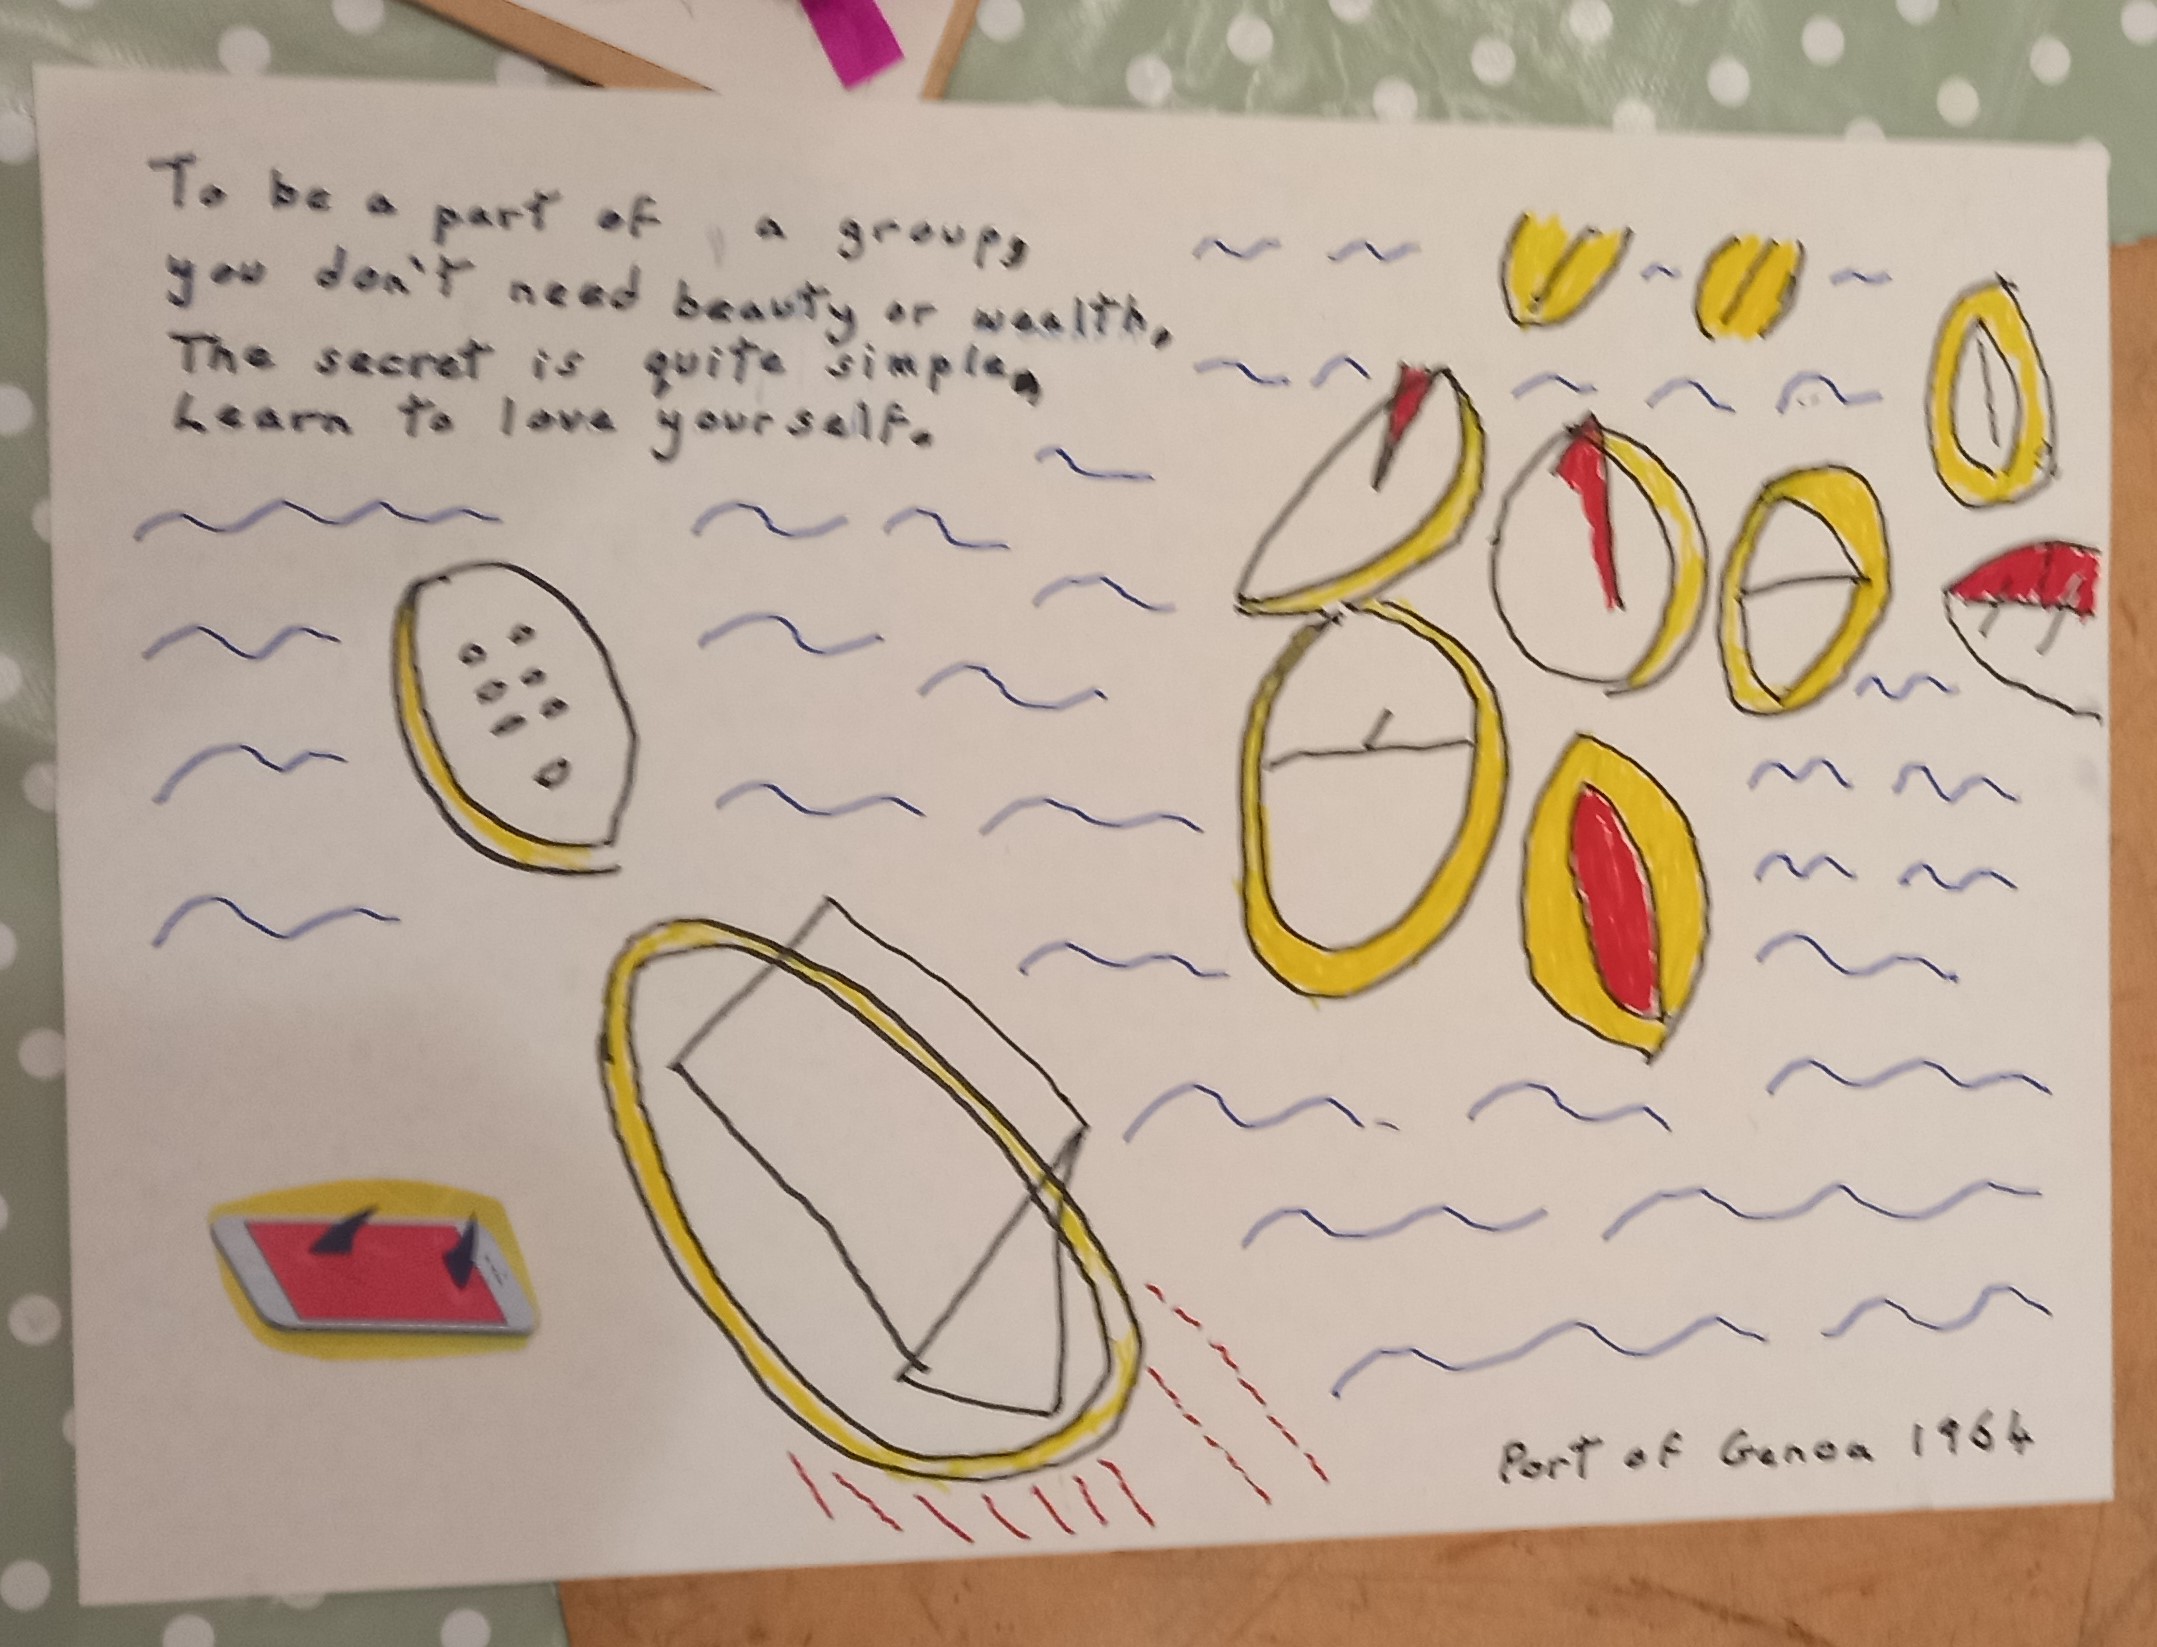 To be a part of a group,
you don't need beauty or wealth.
The secret is quite simple,
Learn to love yourself.
Port of Genoa 1964